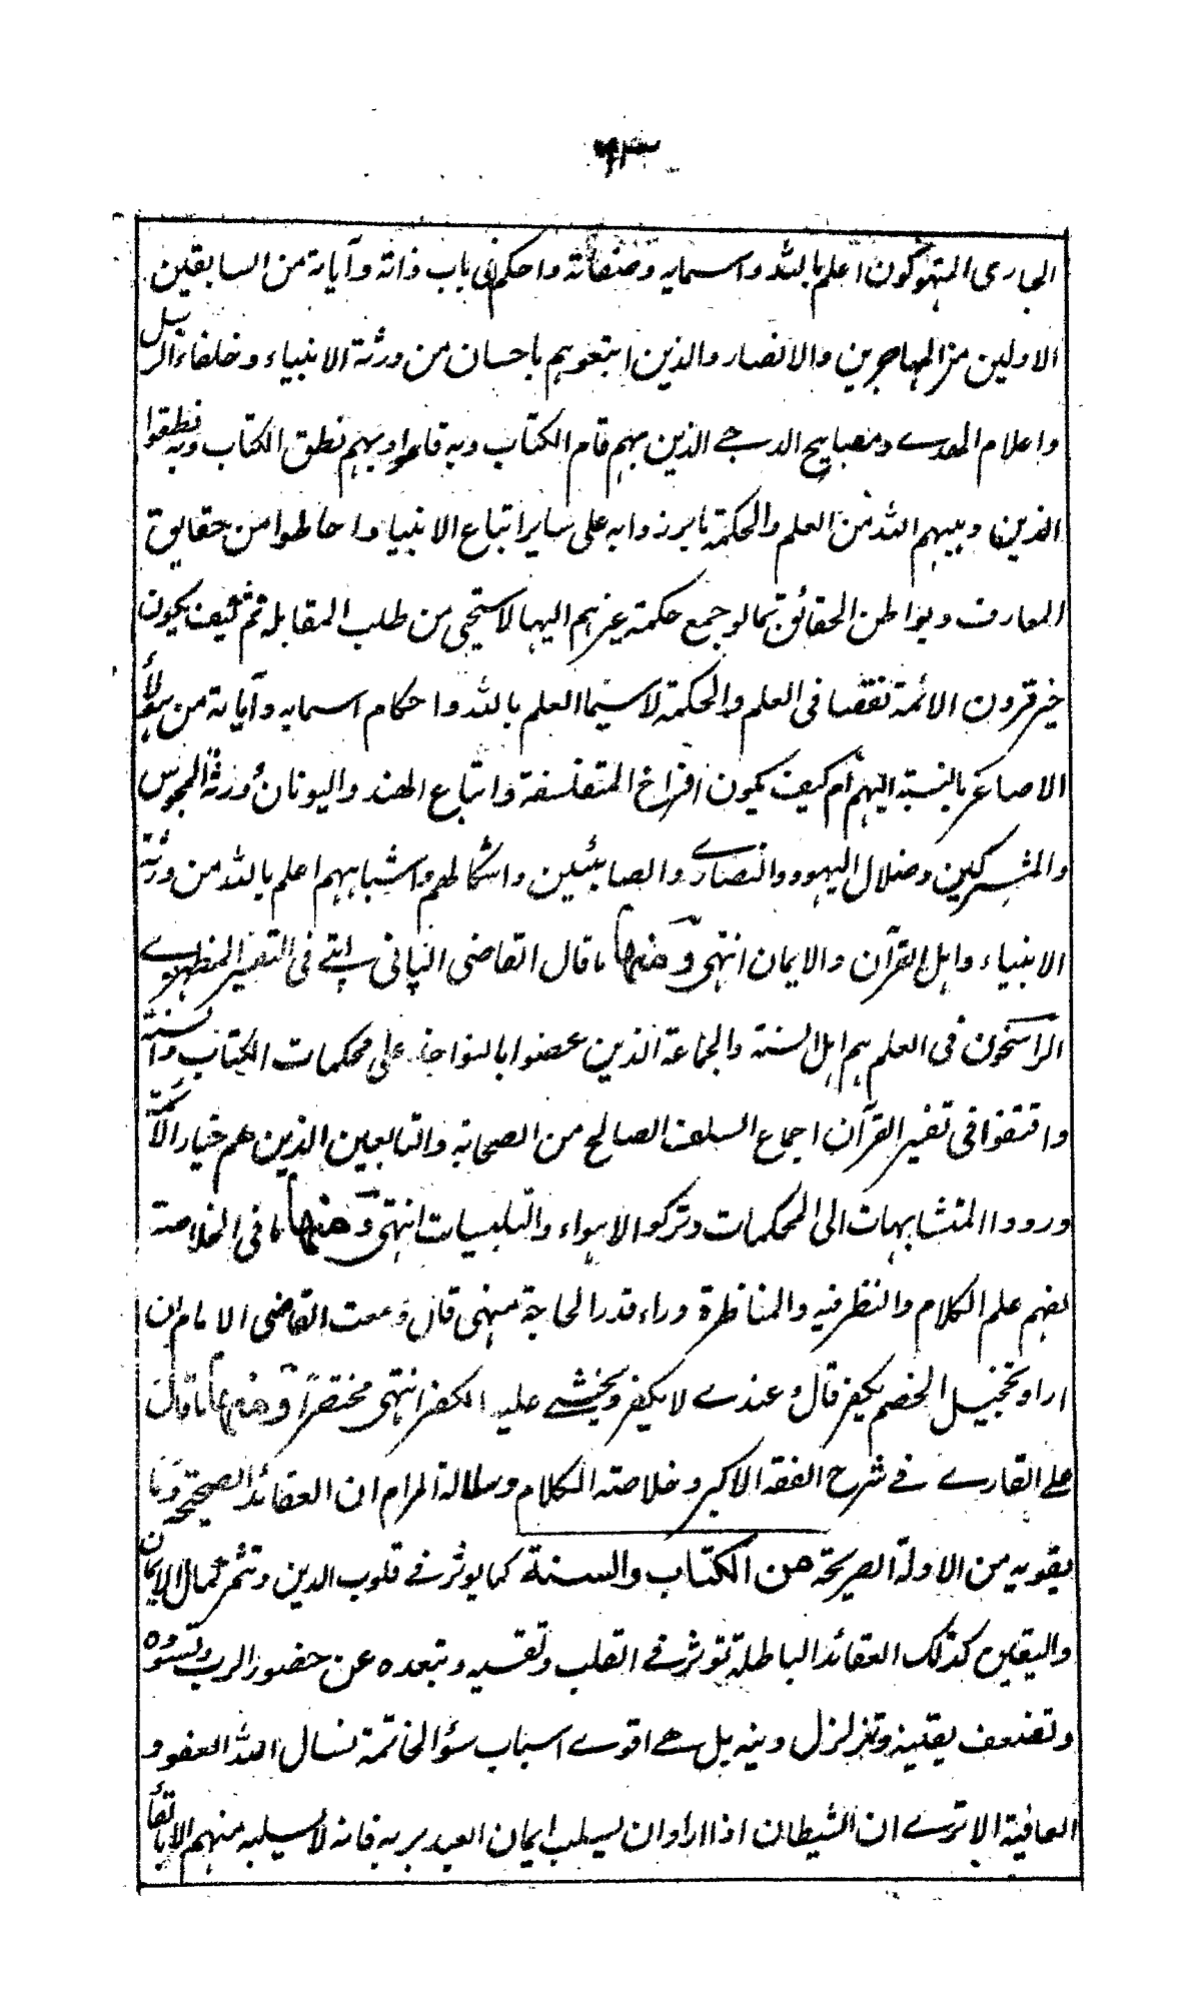 الحيارى المتهوكون اعلم بالله واسمايه وصفاته واحكم فى باب ذاته وآياته من السابقين
الاولين من المهاجرين والانصار والذين اتبعوهم باحسان من ورثة الانبياء وخلفاء الرسل
واعلام الهدے ومصابيح الدجے الذين بهم قام الكتاب وبه قاموا وبهم نطق الكتاب وبه نطقوا
الذين وهبهم الله من العلم والحكمة ما برزوا به على ساير اتباع الانبياء واحاطوا من حقايق
المعارف وبواطن الحقائق بما لو جمع حكمة غيرهم اليها لاستحيى من طلب المقابله ثم كيف يكون
خير قرون الائمة نقصا فى العلم والحكمة لاسيما العلم بالله واحكام اسمايه وآياته من هؤلاء
الاصاغر بالنسبة اليهم أم كيف يكون افراخ المتفلسفة واتباع الهند واليونان ورثة المجوس
والمشركين وضلال اليهود والنصارے والصابئين واشكالهم واشباههم اعلم بالله من ورثة
الانبياء واهل القرآن والايمان انتهى ومنها ما قال القاضى الپانى پتے فى التفسير المظهرے
الراسخون فى العلم هم اهل السنة والجماعة الذين عضوا بالنواجذ على محكمات الكتاب والسنة
واقتفوا فى تفسير القرآن اجماع السلف الصالح من الصحابة والتابعين الذين هم خيار الامة
وردوا المتشابهات الى المحكمات وتركوا الاهواء والتلبيسات انتهى ومنها ما فى الخلاصة
تعلم علم الكلام والنظر فيه والمناظرة وراء قدر الحاجة منهى قال وسمعت القاضى الامام ان
اراد تخجيل الخصم يكفر قال وعندے لا يكفر ويخشے عليه الكفر انتهى مختصرًا ومنها ما قال
علے القارے فے شرح الفقه الاكبر وخلاصة الكلام وسلالة المرام ان العقائد الصحيحة وما
يقويه من الادلة الصريحة من الكتاب والسنة كما يوثر فے قلوب الدين وتثمر كمال الايمان
واليقين كذلك العقائد الباطلة توثر فے القلب وتقسيه وتبعده عن حضور الرب وتسوده
وتضعف يقينه وتزلزل دينه بل هے اقوے اسباب سؤ الخاتمة نسال الله العفو و
العافية الا ترے ان الشيطان اذا اراد ان يسلب ايمان العبد بربه فانه لا يسلبه منهم الا بالقاء